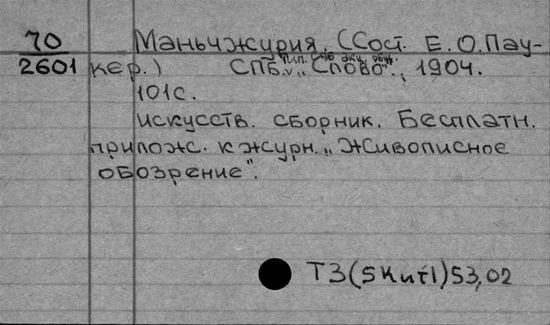 70 Маньчжурия. (Сост. Е.О. Пау-
2601 кер.) СПБ., тип. СПБ акц. общ. "Слово", 1904.
101с.
искусств. сборник. Бесплатн.
прилож. к журн. „Живописное
обозрение".
Т3(5Кит1)53,02